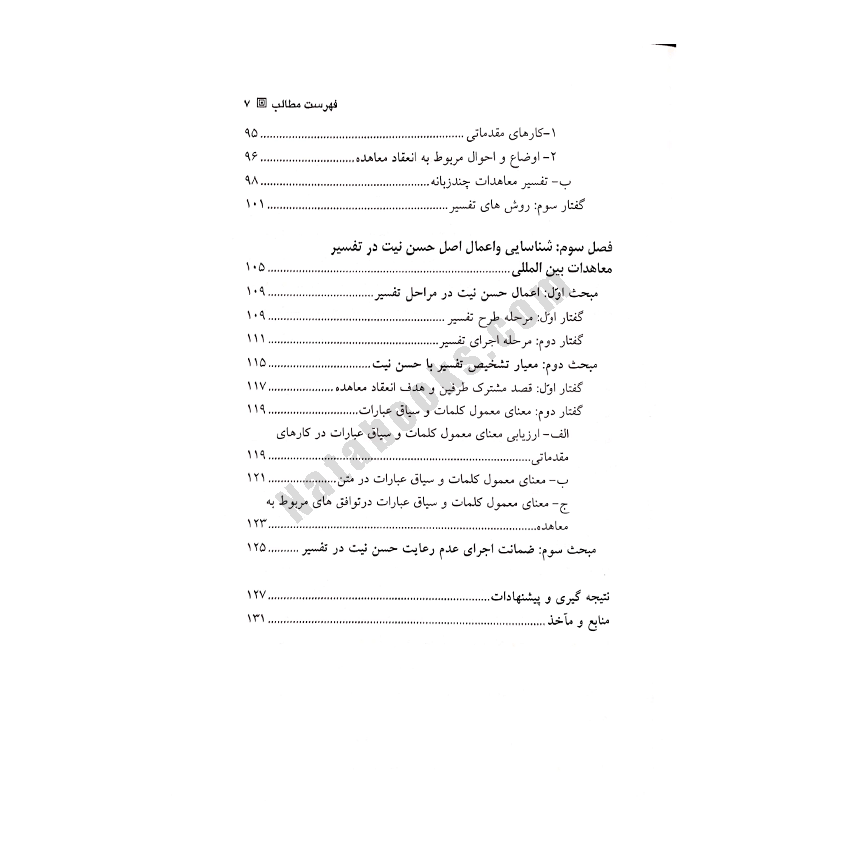 فهرست مطالب ۷
۱-کارهای مقدماتی ........ ۹۵
۲- اوضاع و احوال مربوط به انعقاد معاهده ........ ۹۶
ب- تفسیر معاهدات چندزبانه ........ ۹۸
گفتار سوم: روش های تفسیر ........ ۱۰۱
فصل سوم: شناسایی واعمال اصل حسن نیت در تفسیر
معاهدات بین المللی ........ ۱۰۵
مبحث اوّل: اعمال حسن نیت در مراحل تفسیر ........ ۱۰۹
گفتار اوّل: مرحله طرح تفسیر ........ ۱۰۹
گفتار دوم: مرحله اجرای تفسیر ........ ۱۱۱
مبحث دوم: معیار تشخیص تفسیر با حسن نیت ........ ۱۱۵
گفتار اوّل: قصد مشترک طرفین و هدف انعقاد معاهده ........ ۱۱۷
گفتار دوم: معنای معمول کلمات و سیاق عبارات ........ ۱۱۹
الف- ارزیابی معنای معمول کلمات و سیاق عبارات در کارهای
مقدماتی ........ ۱۱۹
ب- معنای معمول کلمات و سیاق عبارات در متن ........ ۱۲۱
ج- معنای معمول کلمات و سیاق عبارات درتوافق های مربوط به
معاهده ........ ۱۲۳
مبحث سوم: ضمانت اجرای عدم رعایت حسن نیت در تفسیر ........ ۱۲۵
نتیجه گیری و پیشنهادات ........ ۱۲۷
منابع و مآخذ ........ ۱۳۱
Natabooks.com